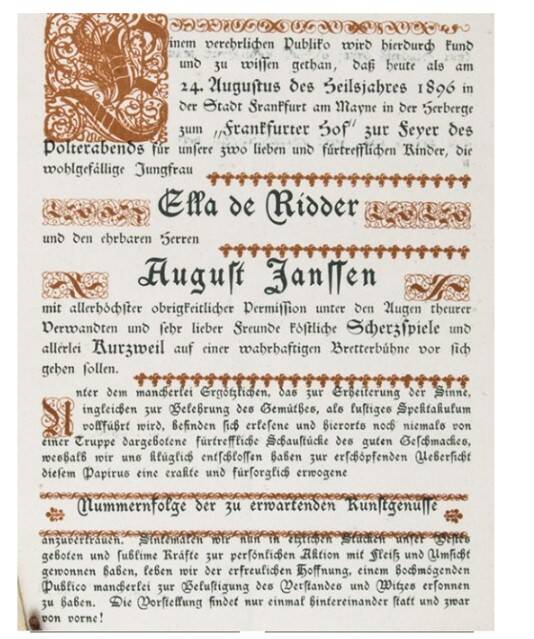 Einem verehrlichen Publiko wird hierdurch kund
und zu wissen gethan, daß heute als am
24. Augustus des Heilsjahres 1896 in
der Stadt Frankfurt am Mayne in der Herberge
zum „Frankfurter Hof" zur Feyer des
Polterabends für unsere zwo lieben und fürtrefflichen Kinder, die
wohlgefällige Jungfrau
Ella de Ridder
und den ehrbaren Herren
August Janssen
mit allerhöchster obrigkeitlicher Permission unter den Augen theurer
Verwandten und sehr lieber Freunde köstliche Scherzspiele und
allerlei Kurzweil auf einer wahrhaftigen Bretterbühne vor sich
gehen sollen.
Unter dem mancherlei Ergötzlichen, das zur Erheiterung der Sinne,
ingleichen zur Belehrung des Gemüthes, als lustiges Spektakulum
vollführt wird, befinden sich erlesene und hierorts noch niemals von
einer Truppe dargebotene fürtreffliche Schaustücke des guten Geschmackes,
weshalb wir uns klüglich entschlossen haben zur erschöpfenden Uebersicht
diesem Papirus eine exakte und fürsorglich erwogene
Nummernfolge der zu erwartenden Kunstgenusse
anzuvertrauen. Sintemalen wir nun in etzlichen Stücken unser Bestes
geboten und sublime Kräfte zur persönlichen Aktion mit Fleiß und Umsicht
gewonnen haben, leben wir der erfreulichen Hoffnung, einem hochmögenden
Publico mancherlei zur Belustigung des Verstandes und Witzes ersonnen
zu haben. Die Vorstellung findet nur einmal hintereinander statt und zwar
von vorne!